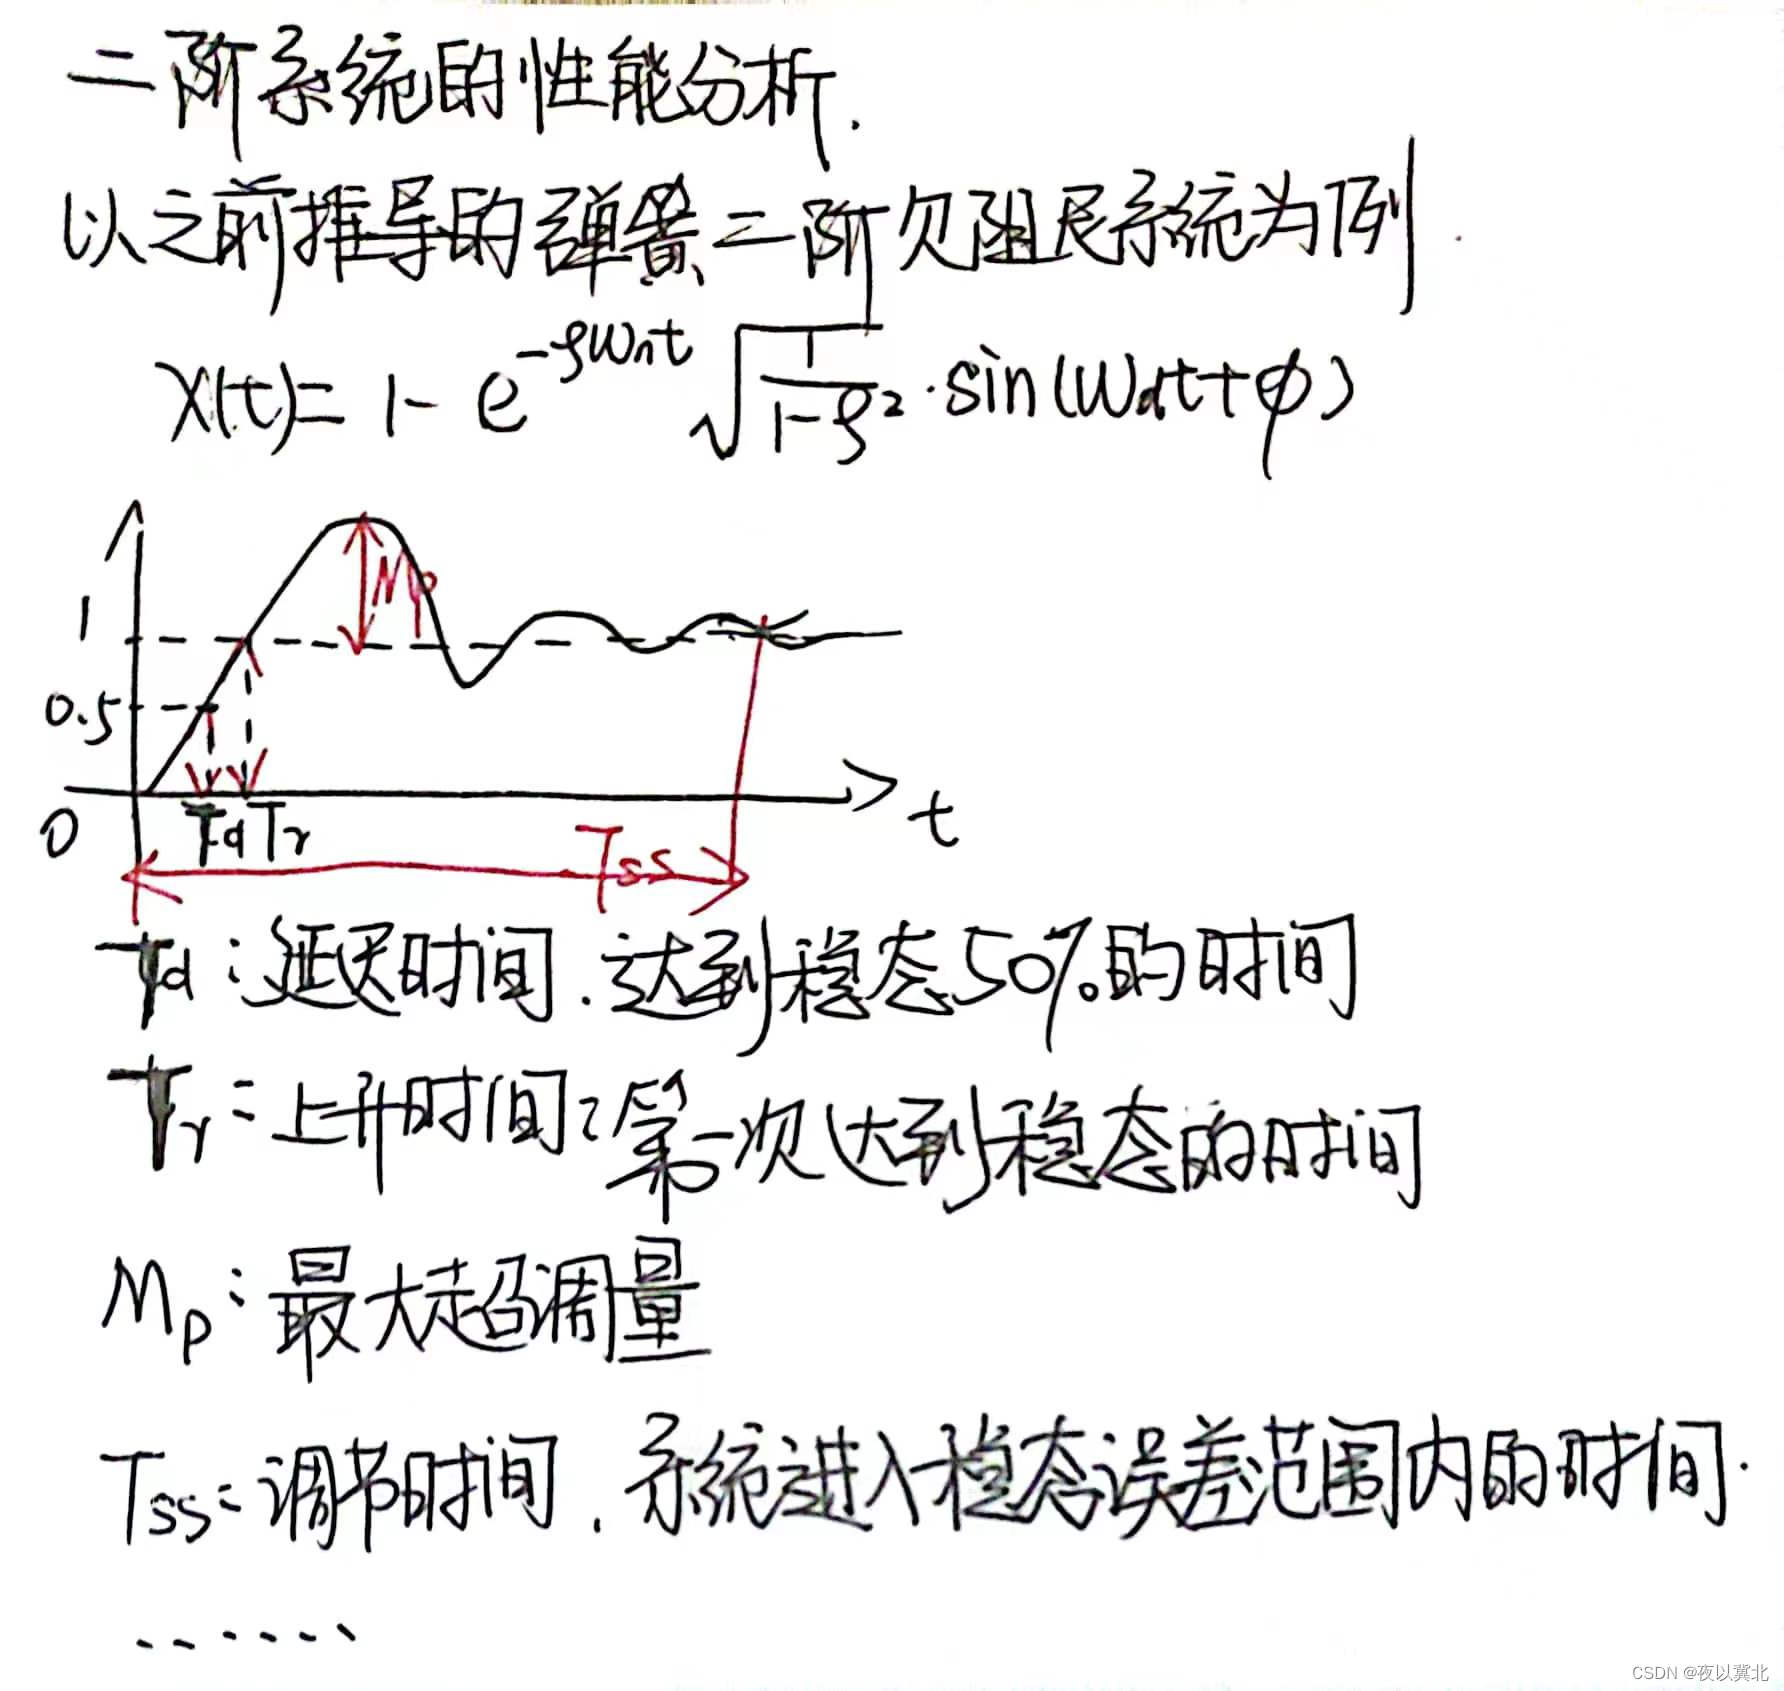 二阶系统的性能分析.
以之前推导的弹簧二阶欠阻尼系统为例.
x(t)= 1- e^{-ζωnt} √(1/(1-ζ²))·sin(ωdt+φ)
Mp
1
0.5
0
Td Tr
t
Tss
Td:延迟时间.达到稳态50%的时间
Tr:上升时间:第一次达到稳态的时间
Mp:最大超调量
Tss:调节时间,系统进入稳态误差范围内的时间.
......
CSDN @夜以冀北